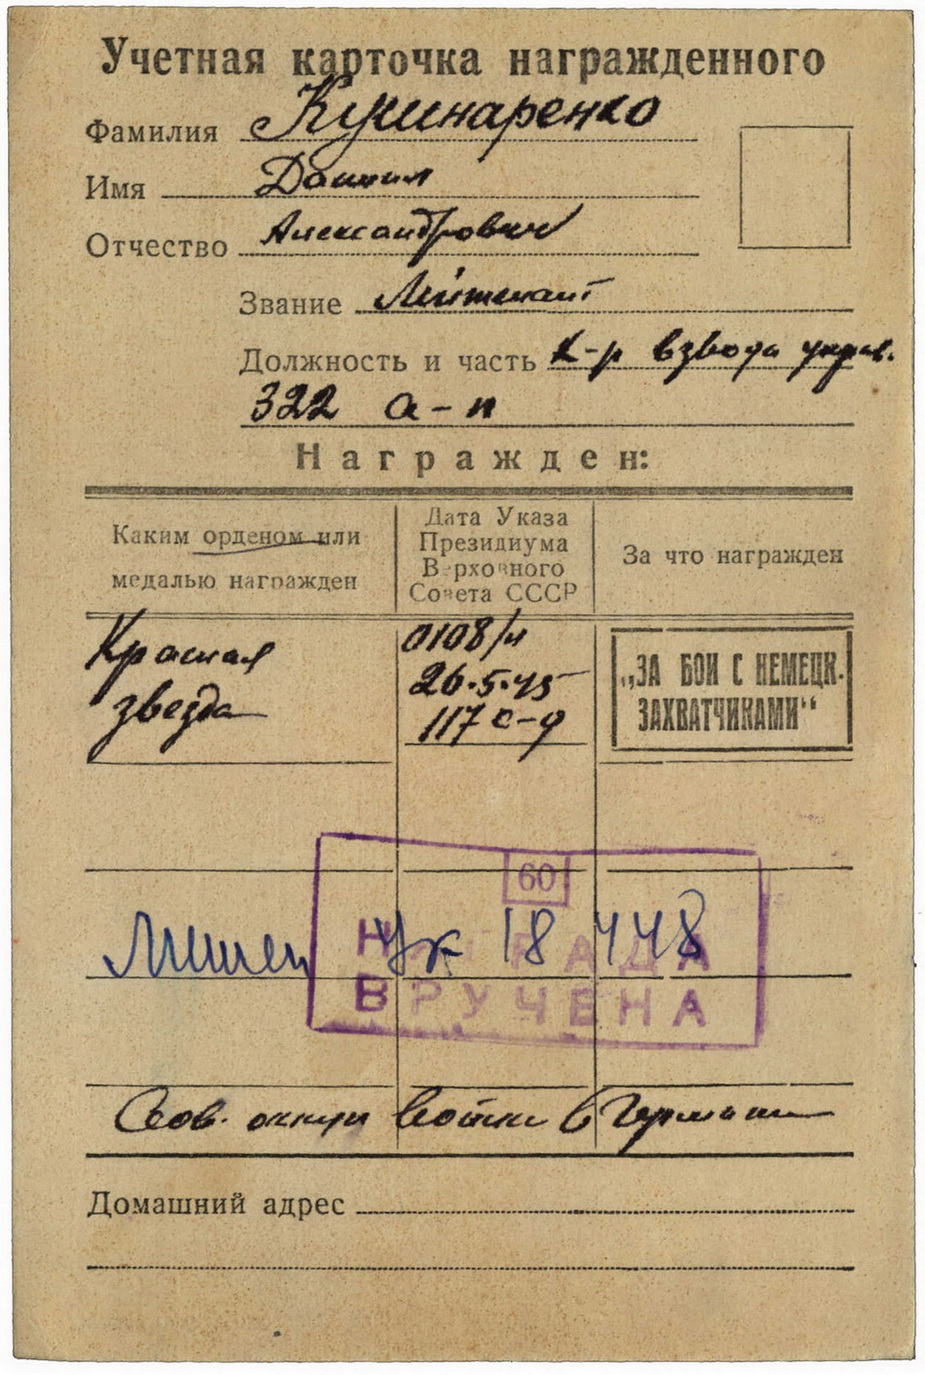 Учетная карточка награжденного
Фамилия Кушнаренко
Имя Даниил
Отчество Александрович
Звание Лейтенант
Должность и часть к-р взвода управ.
322 а-п
Награжден:
Каким орденом или
медалью награжден
Дата Указа
Президиума
Верховного
Совета СССР
За что награжден
Красная
звезда
0108/н
26.5.45
117 с-д
„ЗА БОИ С НЕМЕЦК.
ЗАХВАТЧИКАМИ“
60
НАГРАДА
ВРУЧЕНА
Ук 18 448
Сов. оккуп войска в Германии
Домашний адрес